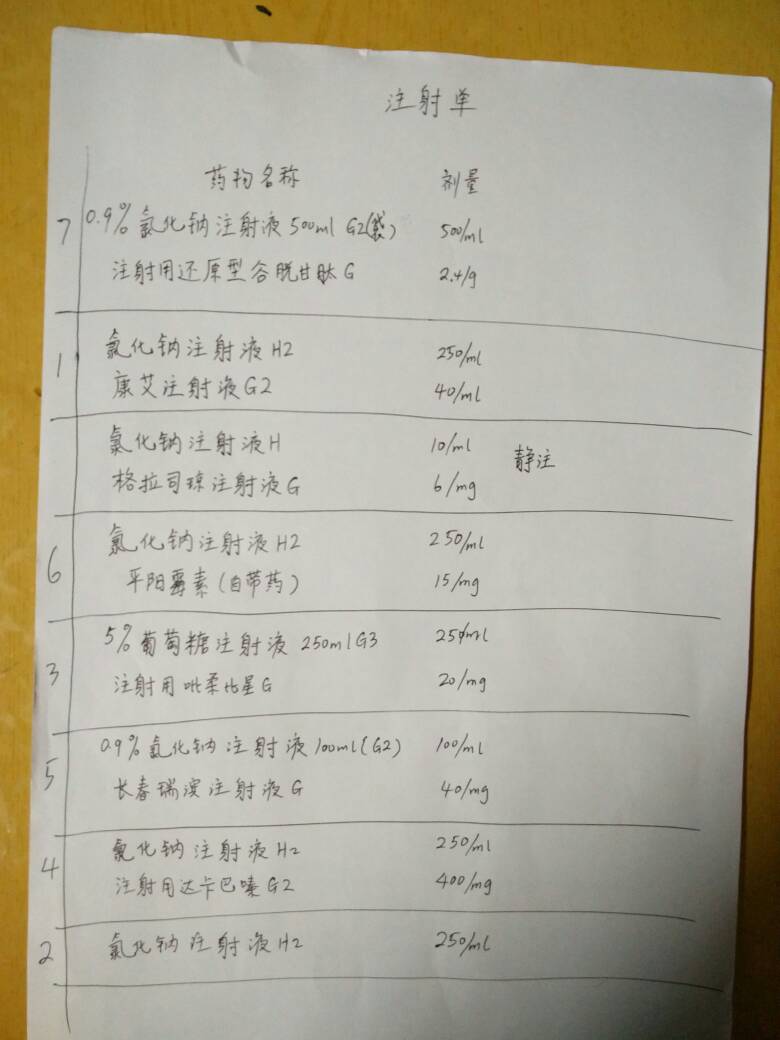 注射单
药物名称 剂量
7 0.9%氯化钠注射液500ml G2(袋) 500/ml
注射用还原型谷胱甘肽G 2.4/g
1 氯化钠注射液H2 250/ml
康艾注射液G2 40/ml
氯化钠注射液H 10/ml 静注
格拉司琼注射液G 6/mg
6 氯化钠注射液H2 250/ml
平阳霉素(自带药) 15/mg
3 5%葡萄糖注射液 250mlG3 250/ml
注射用吡柔比星G 20/mg
5 0.9%氯化钠注射液100ml(G2) 100/ml
长春瑞滨注射液G 40/mg
4 氯化钠注射液H2 250/ml
注射用达卡巴嗪G2 400/mg
2 氯化钠注射液H2 250/ml